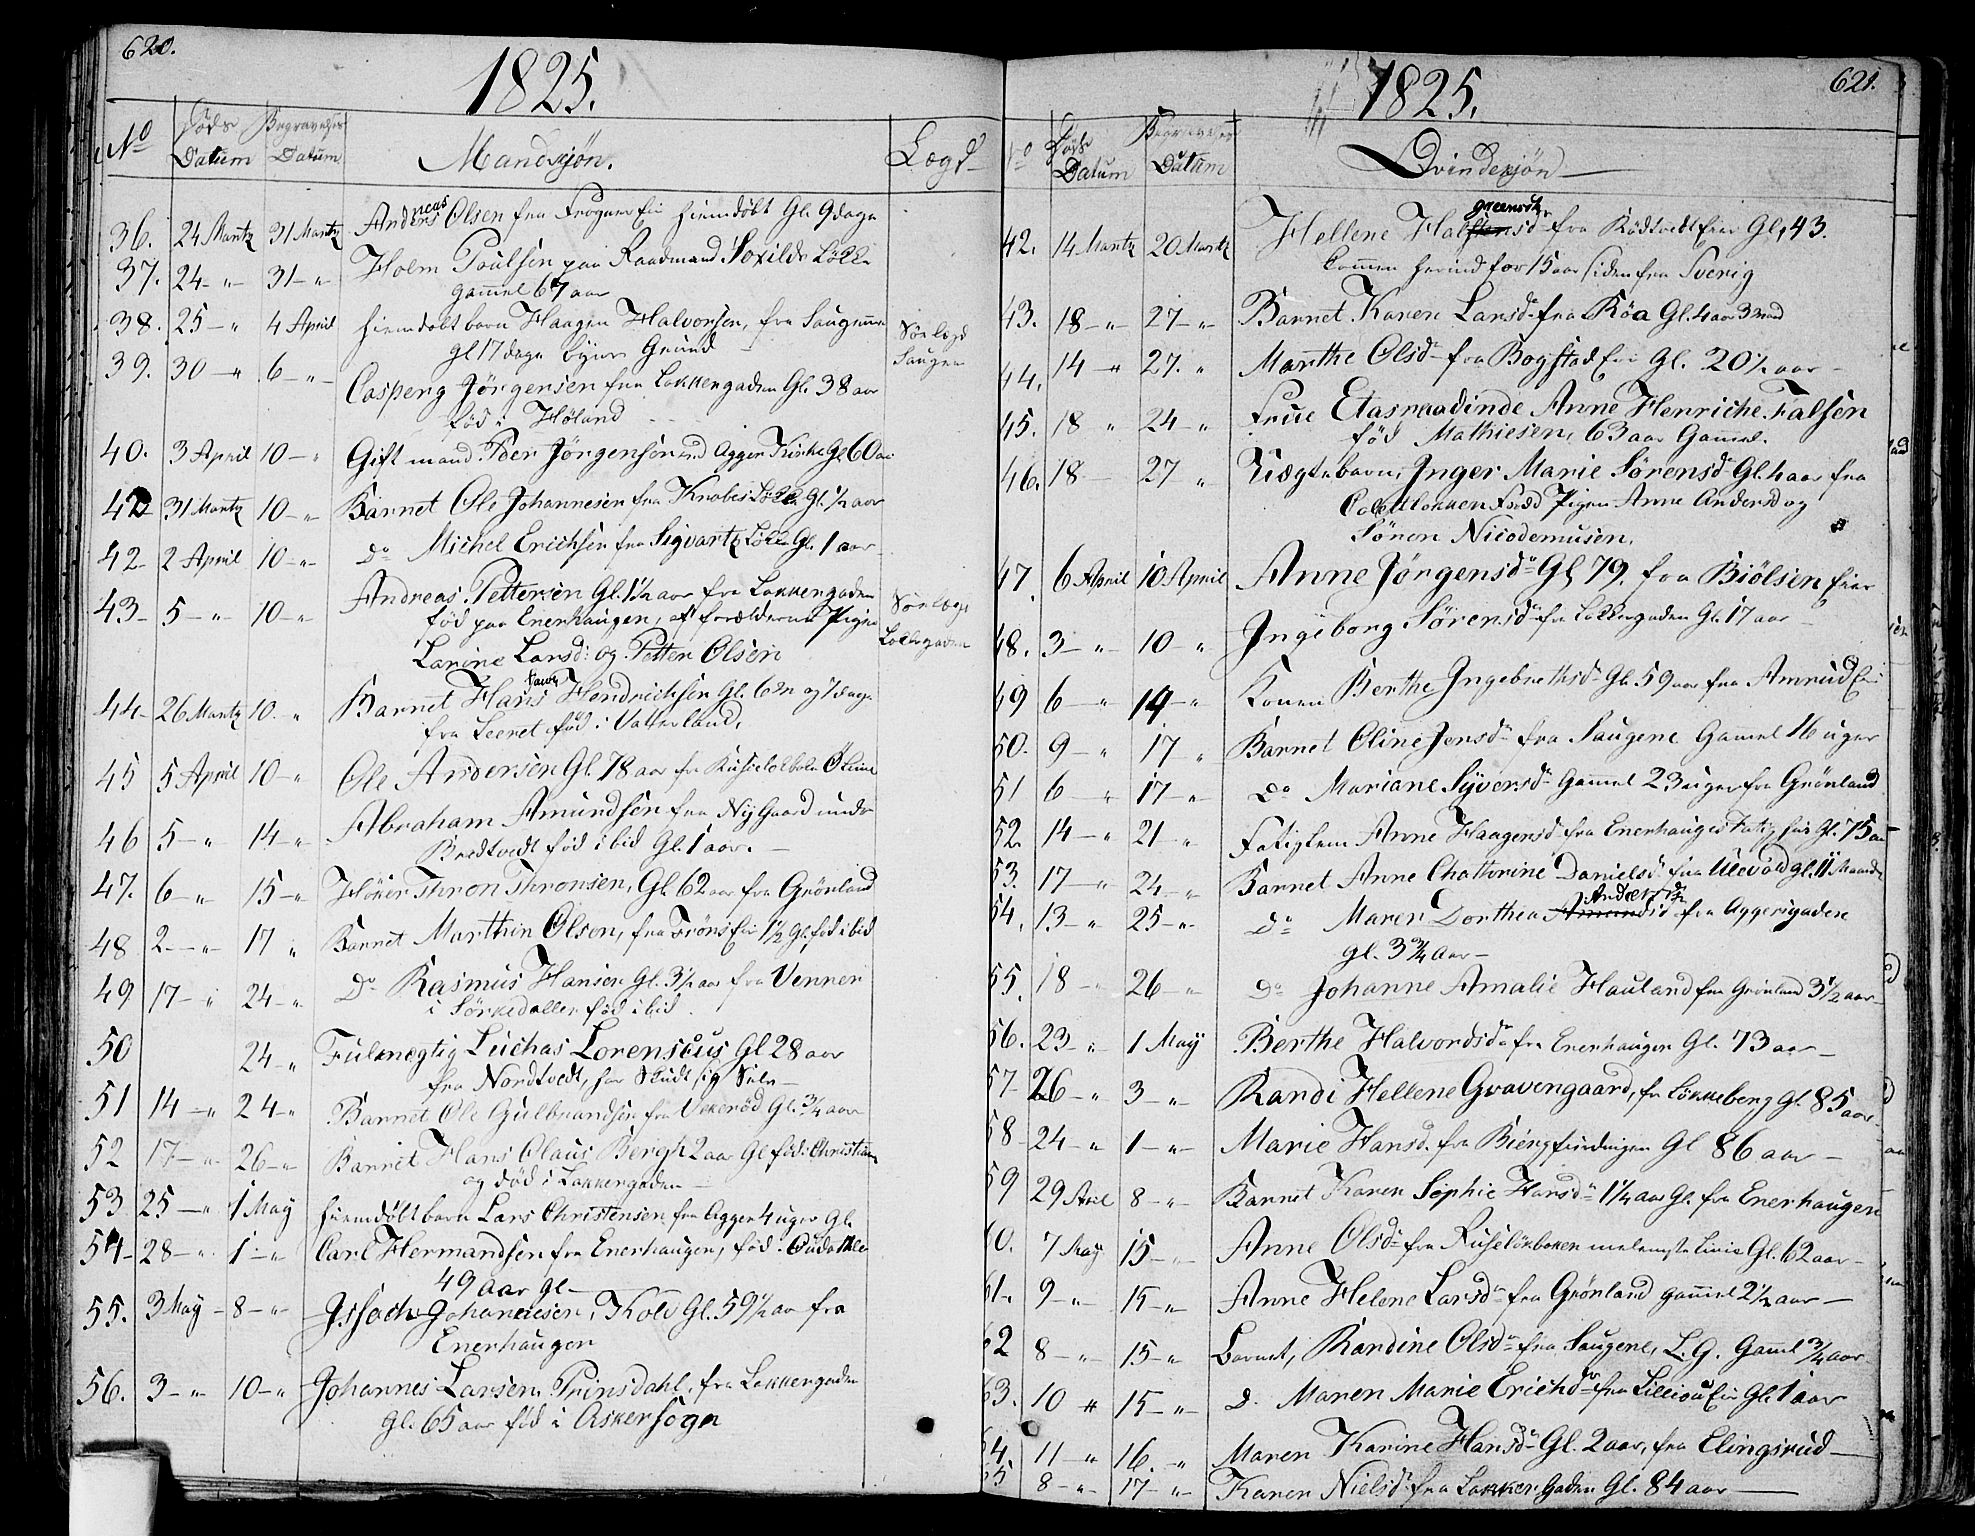 620.
1825.
No Døds Datum Begravelses Datum Mandkjøn. Lægd
36. 24 Martz 31 Martz Andreas Olsen fra Frogner Ei hiemdøbt Gl. 9 dage
37. 24 - " - 31 - " Holm Poulsen paa Raadmand Løkke
gammel 67 aar
38. 25 - " 4 April hiemdøbt barn Haagen Halvorsen, fra Saugene
Gl 17 dage
Saugen
39. 30 - " 6 - " - Jörgensen fra Løkkergaden Gl. 38 aar
fød i Høland
40. 3 April 10 - " Gift mand Peder Jörgensen ved Agger Kirke Gl 60 aar
31 Martz 10 - " Barnet Ole Johannesen fra Løkke Gl. 1/2 aar
42 - 2 April 10 - " - do Michel Erichsen fra Sigvartz Løkke Gl. 1 aar
43 - 5 - " - 10 - " Andreas Pettersen Gl. 1 1/2 aar fra Løkkergaden
fød paa Enerhaugen, af forældrene Pigen
Larine Larsd: og Petter Olsen
44 - 26 Martz 10. " Barnet Hans Hendrichsen Gl. 6 og 7 dage
fra Leeret fød i Vatterland,
45 5 April 10 - " Ole Andersen Gl. 78 aar fr
46 5 - " 14 - " Abraham Amundsen fra Nygaard under
Bredtvedt fød ibid Gl. 1 aar. -
47. 6 - " 15 - " Høker Thron Thronsen, Gl. 62 aar fra Grönland
48 2 - " - 17 " Barnet Marthin Olsen, fra Ei 1 1/2 Gl. fød ibid
49 17 - " 24 - " Do Rasmus Hansen Gl. 3 1/2 aar fra Venner
i Sørkedallen fød ibid.
50 24 - " Fulmegtig Luchas Gl 28 aar
fra Nordtvedt, har Skudt sig Selv -
51 14 - " 24 - " Barnet Ole Gulbrandsen fra Gl. 3/4 aar
52 17 - " 26 - " Barnet Hans Claus Bergh 2 aar Gl fød i Christiania
og død i Løkkergaden -
53 25 - " 1 May hiemdøbt barn Lars Christensen fra Agger 4 uger Gl.
54 - 28 - " 1 - " Carl Hermandsen fra Enerhaugen, fød i
49 aar Gl -
55. 3 May - 8 - " Johannesen, Gl. 59 1/2 aar fra
Enerhaugen
56. 3 - " 10 - " Johannes Larsen Prinsdahl, fra Løkkergaden
Gl. 65 aar fød i Askersogn
621.
1825.
No Døds Datum Begravelses Datum Qvindekjøn
42. 14 Martz 20 Martz Hellene fra Rödtvedt Eier Gl, 43.
kommen herind for 15 aar siden fra Sverig
43. 18 - " 27 - " Barnet Karen Larsd: fra Röa Gl. 4 aar 3 mnd
44. 14 - " 27. " Marthe Olsd: fra Bogstad Ei Gl. 20 1/2 aar -
45. 18 " 24 - " Frue Etasraadinde Anne Henriche Falsen
fød Mathiesen, 63 aar Gammel.
46. 18 - 27 " Uægte barn, Inger Marie Sørensd: Gl. 4 aar fra
Pigen Anne Andersd og
Sören Nicodemusen.
47. 6 April 10 April Anne Jörgensd: Gl 79. fra Biölsen Eier
48. 3 - " 10 - " Ingeborg Sörensd: fra Løkkergaden Gl. 17 aar -
49 6 - " 14 - " Konen Berthe Ingebrethsd: Gl. 59 aar fra Ei
50. 9 - " 17 " Barnet Oline Jensd: fra Saugene Gammel 16 uger
51 6 - " 17 - " do Mariane Syversd: Gammel 23 uger fra Grönland
52. 14 - " 21 - " Fatiglem Anne Haagensd: fra Enerhaugens Fatighus Gl. 75 aar
53. 17 - " 24 - " Barnet Anne Chathrine Danielsd: fra Ulevold Gl. 11 Maaneder
54. 13 - " 25 - " do Maren Dorthea Andersd fra Aggersgadene
gl. 3 3/4 aar -
55. 18 - " 26 - " Do Johanne Amalie Hauland fra Grönland 3 1/2 aar -
56. 23 - " 1 May Berthe Halvordsd: fra Enerhaugen Gl. 73 aar -
57 - 26 - " 3 - " Randi Hellene Gravengaard, fr Løkkeberg Gl. 85 aar -
58 - 24 - " 1 - " Marie Hansd. fra Gl 86 aar -
59 29 April 8 - " Barnet Karen Sophie Hansd: 1 1/4 aar Gl. fra Enerhaugen
60. 7 May 15 - " Anne Olsd: fra Linie Gl. 62 aar -
61. 9 - " 15 - " Anne Helene Larsd: fra Grönland gammel 2 1/2 aar -
62 8 - " 15 - " Barnet, Randine Olsd: fra Saugene, L. G. Gaml 3/4 aar
63. 10 " 15 - " d. Maren Marie Erichsd: fra Ei Gl. 1 aar
64. 11 - " 16. " Maren Karine Hansd: Gl. 2 aar, fra Elingsrud -
65 8 - " 17 - " Karen Nielsd: fra Løkker Gaden Gl. 84 aar -